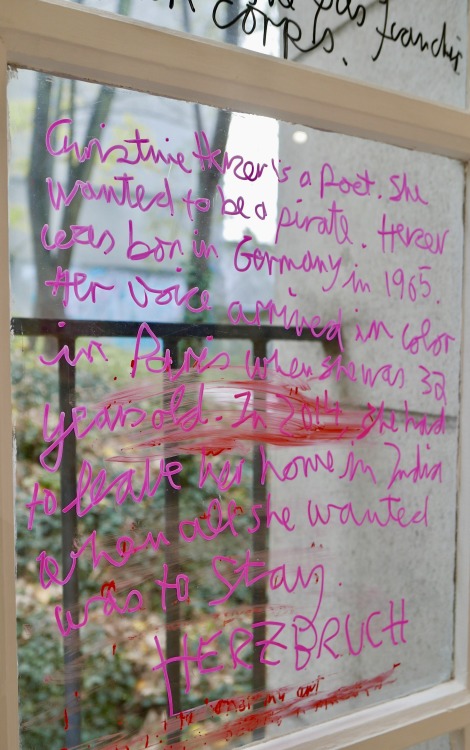 she was francher
corps.
Christine Herzer is a Poet. She
wanted to be a pirate. Herzer
was born in Germany in 1965.
Her voice arrived in color
in Paris when she was 32
years old. In 2014, she had
to leave her home in India
when all she wanted
was to Stay.
HERZBRUCH